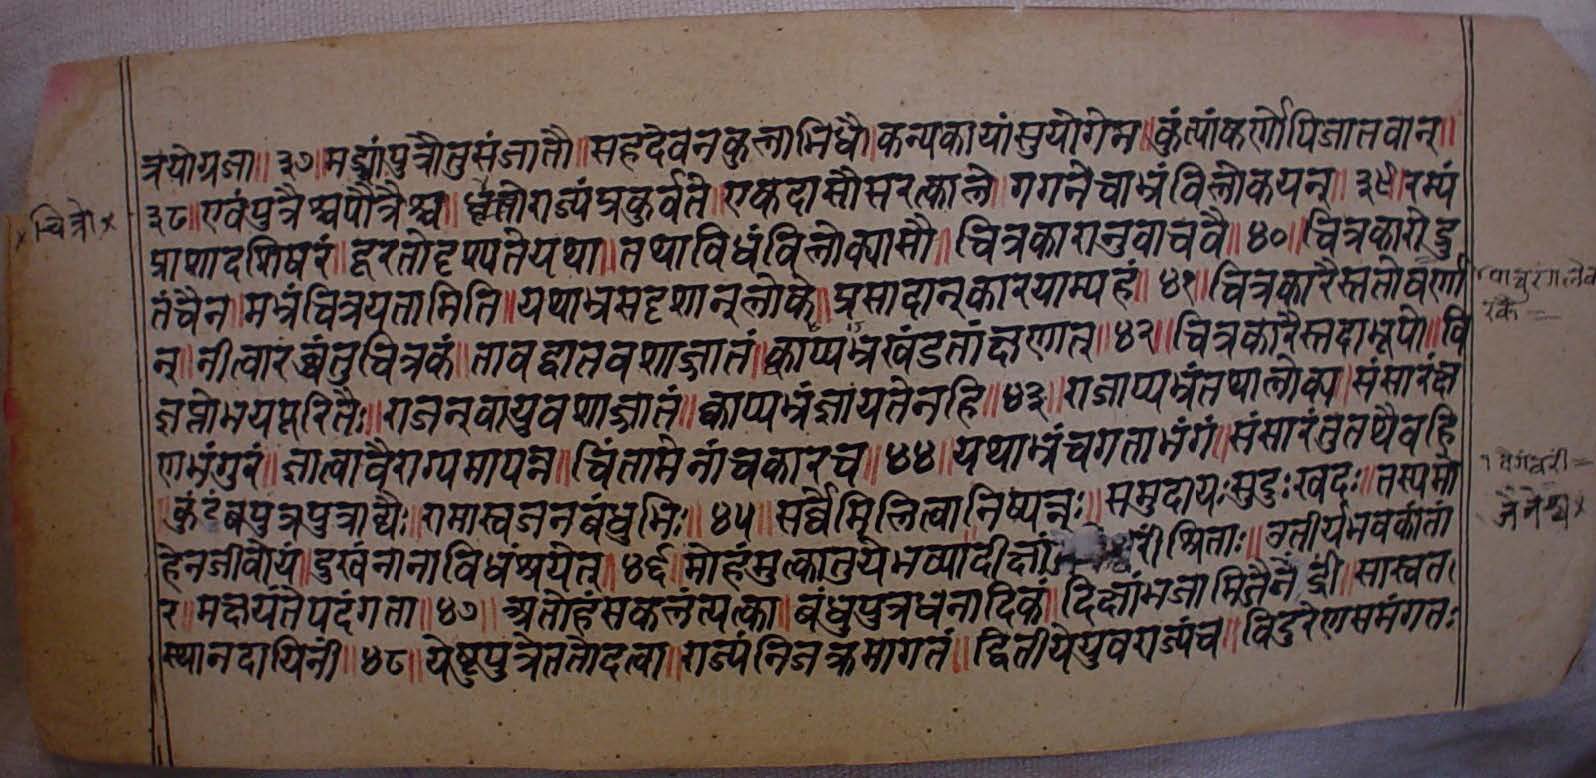 त्रयोग्रजा॥ ३७ मद्र्यांपुत्रौतुसंजातौ॥ सहदेवनकुलाभिधौ॥ कन्यकायांसुयोगेन॥ कुंत्यांकर्णोपिजातवान्॥
३८॥ एवंपुत्रैश्चपौत्रैश्च॥ राज्यंप्रकुर्वते॥ एकदासौसरत्काले॥ गगनेचाभ्रंविलोकयन्॥ ३९॥ रम्यं
चित्रो
प्राशादशिषरं॥ दूरतोदृश्यतेयथा॥ तथाविधंविलोक्यासौ॥ चित्रकारानुवाचवै॥ ४०॥ चित्रकारोद्रु
तंचैन॥ मभ्रंचित्रयतामिति॥ यथाभ्रसदृशान्लोके॥ प्रसादान्कारयाम्यहं॥ ४१॥ चित्रकारैस्ततोवर्णा
न्॥ नीत्वारब्धंतुचित्रकं॥ तावद्वातवशाज्जातं॥ क्वाप्यभ्रखंडतांक्षणात्॥ ४२॥ चित्रकारैस्तदाभूपो॥ वि
ज्ञप्तोभयपूरितैः॥ राजन्वायुवशाज्जातं॥ क्वाप्यभ्रंज्ञायतेनहि॥ ४३॥ राजाप्यभ्रंतथालोक्य॥ संसारंक्ष
णभंगुरं॥ ज्ञात्वावैराग्यमापन्न॥ श्चिंतामेनांचकारच॥ ४४॥ यथाभ्रंचगताभंगं॥ संसारंतुतथैवहि
॥ कुंटंबपुत्रपुत्राद्यैः॥ रामास्वजनबंधुभिः॥ ४५॥ सर्वैर्मिलित्वानिष्पन्नः॥ समुदायःसुदुःखदः॥ तस्यमो
हेनजीवोयं॥ दुखंनानाविधंश्रयेत्॥ ४६॥ मोहंमुत्कातुयेभव्या॥ दीक्षां रीश्रिताः॥ उतीर्यभवकांता
र॥ मक्षयंतैपदंगता॥ ४७॥ अतोहंसकलंत्यत्का॥ बंधुपुत्रधनादिकं॥ दिक्षांभजामिजैनें द्री॥ सास्वत
स्थानदायिनीं॥ ४८॥ येष्टपुत्रेततोदत्वा॥ राज्यंनिजक्रमागतं॥ द्वितीयेयुवराज्यंच॥ विदुरेणसमंगतः